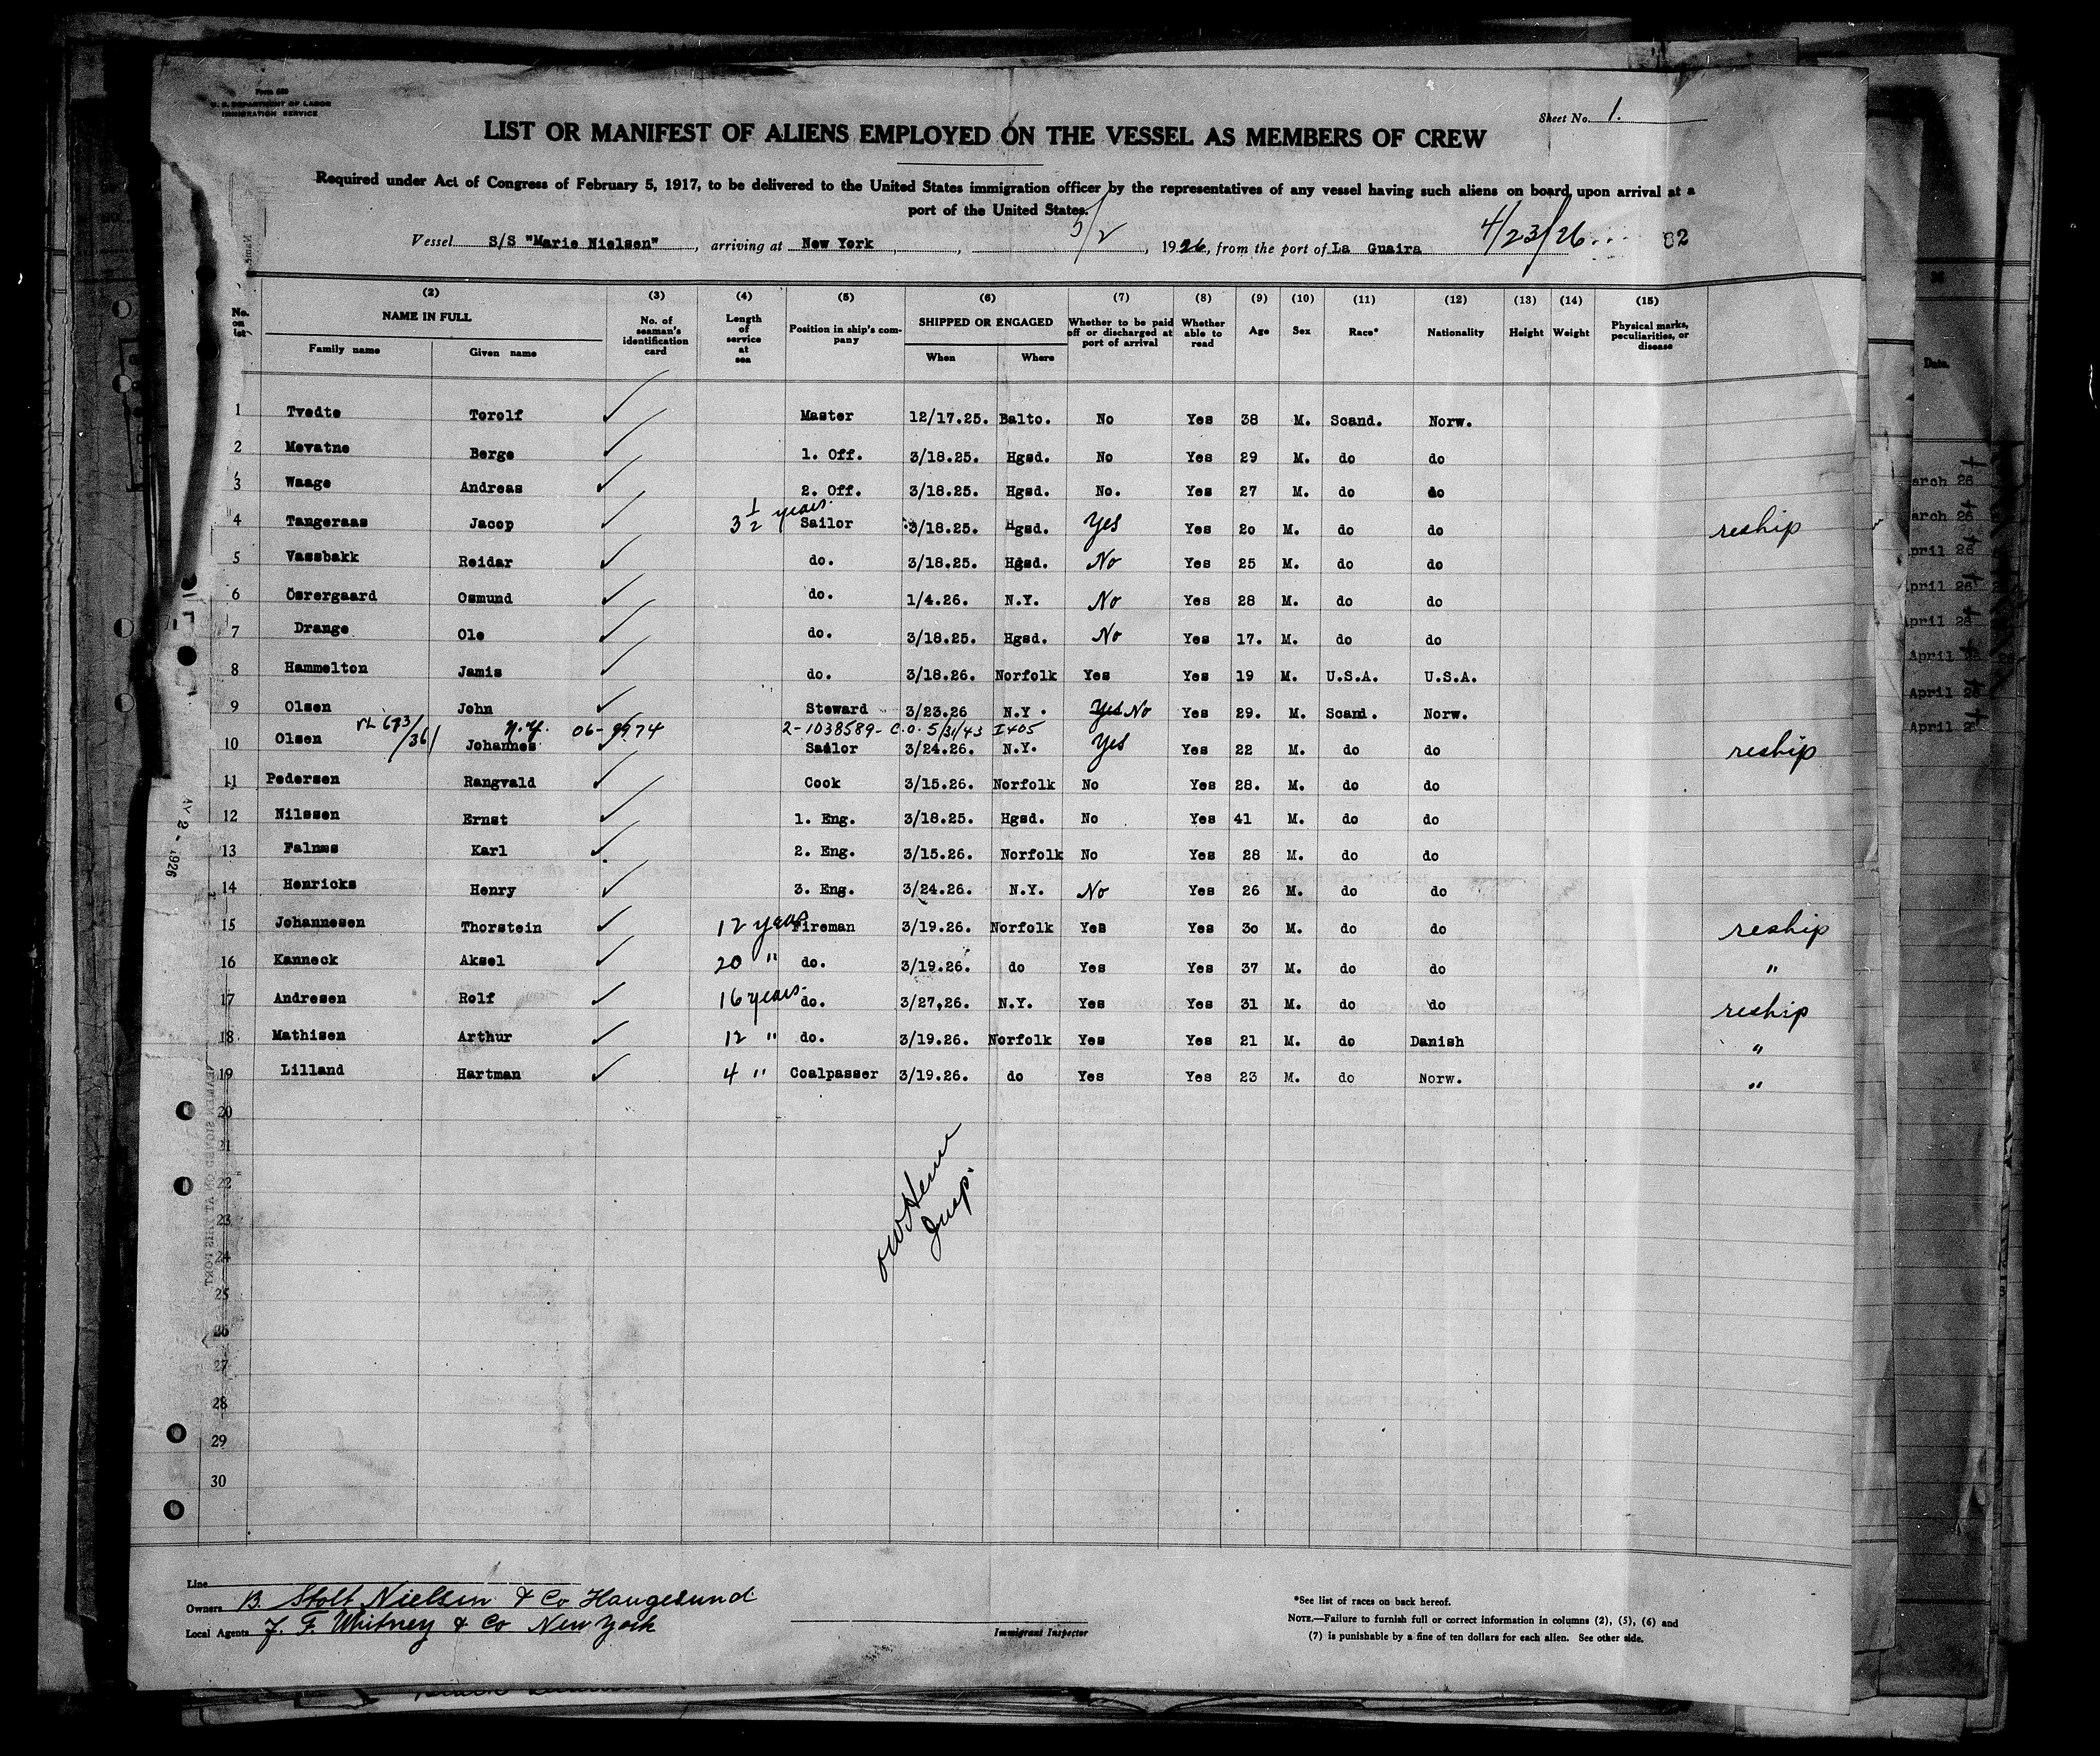 Form 680
U. S. DEPARTMENT OF LABOR
IMMIGRATION SERVICE
Sheet No. 1.
LIST OR MANIFEST OF ALIENS EMPLOYED ON THE VESSEL AS MEMBERS OF CREW
Required under Act of Congress of February 5, 1917, to be delivered to the United States immigration officer by the representatives of any vessel having such aliens on board upon arrival at a
port of the United States.
Vessel S/S "Marie Nielsen", arriving at New York, 5/2, 1926, from the port of La Guaira 4/23/26 82
No. on list (2) NAME IN FULL Family name Given name (3) No. of seaman's identification card (4) Length of service at sea (5) Position in ship's company (6) SHIPPED OR ENGAGED When Where (7) Whether to be paid off or discharged at port of arrival (8) Whether able to read (9) Age (10) Sex (11) Race* (12) Nationality (13) Height (14) Weight (15) Physical marks, peculiarities, or disease
1 Tvedte Torolf Master 12/17.25. Balto. No Yes 38 M. Scand. Norw.
2 Mevatne Berge 1. Off. 3/18.25. Hgsd. No Yes 29 M. do do
3 Waage Andreas 2. Off. 3/18.25. Hgsd. No. Yes 27 M. do do
4 Tangeraas Jacop 3 1/2 years Sailor 3/18.25. Hgsd. Yes Yes 20 M. do do reship
5 Vassbakk Reidar do. 3/18.25. Hgsd. No Yes 25 M. do do
6 Osrergaard Osmund do. 1/4.26. N.Y. No Yes 28 M. do do
7 Drange Ole do. 3/18.25. Hgsd. No Yes 17. M. do do
8 Hammelton Jamis do. 3/18.26. Norfolk Yes Yes 19 M. U.S.A. U.S.A.
9 Olsen John Steward 3/23.26 N.Y. Yes No Yes 29. M. Scand. Norw.
N.Y. 06-9974 2-1038589- C.O. 5/31/43 I405
10 Olsen Johannes Sailor 3/24.26. N.Y. Yes Yes 22 M. do do reship
11 Pedersen Rangvald Cook 3/15.26. Norfolk No Yes 28. M. do do
12 Nilssen Ernst 1. Eng. 3/18.25. Hgsd. No Yes 41 M. do do
13 Falnes Karl 2. Eng. 3/15.26. Norfolk No Yes 28 M. do do
14 Henricks Henry 3. Eng. 3/24.26. N.Y. No Yes 26 M. do do
15 Johannesen Thorstein 12 years Fireman 3/19.26. Norfolk Yes Yes 30 M. do do reship
16 Kanneck Aksel 20 " do. 3/19.26. do Yes Yes 37 M. do do "
17 Andresen Rolf 16 years do. 3/27.26. N.Y. Yes Yes 31 M. do do reship
18 Mathisen Arthur 12 " do. 3/19.26. Norfolk Yes Yes 21 M. do Danish "
19 Lilland Hartman 4 " Coalpasser 3/19.26. do Yes Yes 23 M. do Norw. "
20
21
22
23
24
25
26
27
28
29
30
Insp.
Line
Owners B. Stolt Nielsen & Co Haugesund
Local Agents J. F. Whitney & Co New York
Immigrant Inspector
*See list of races on back hereof.
NOTE.—Failure to furnish full or correct information in columns (2), (5), (6) and
(7) is punishable by a fine of ten dollars for each alien. See other side.